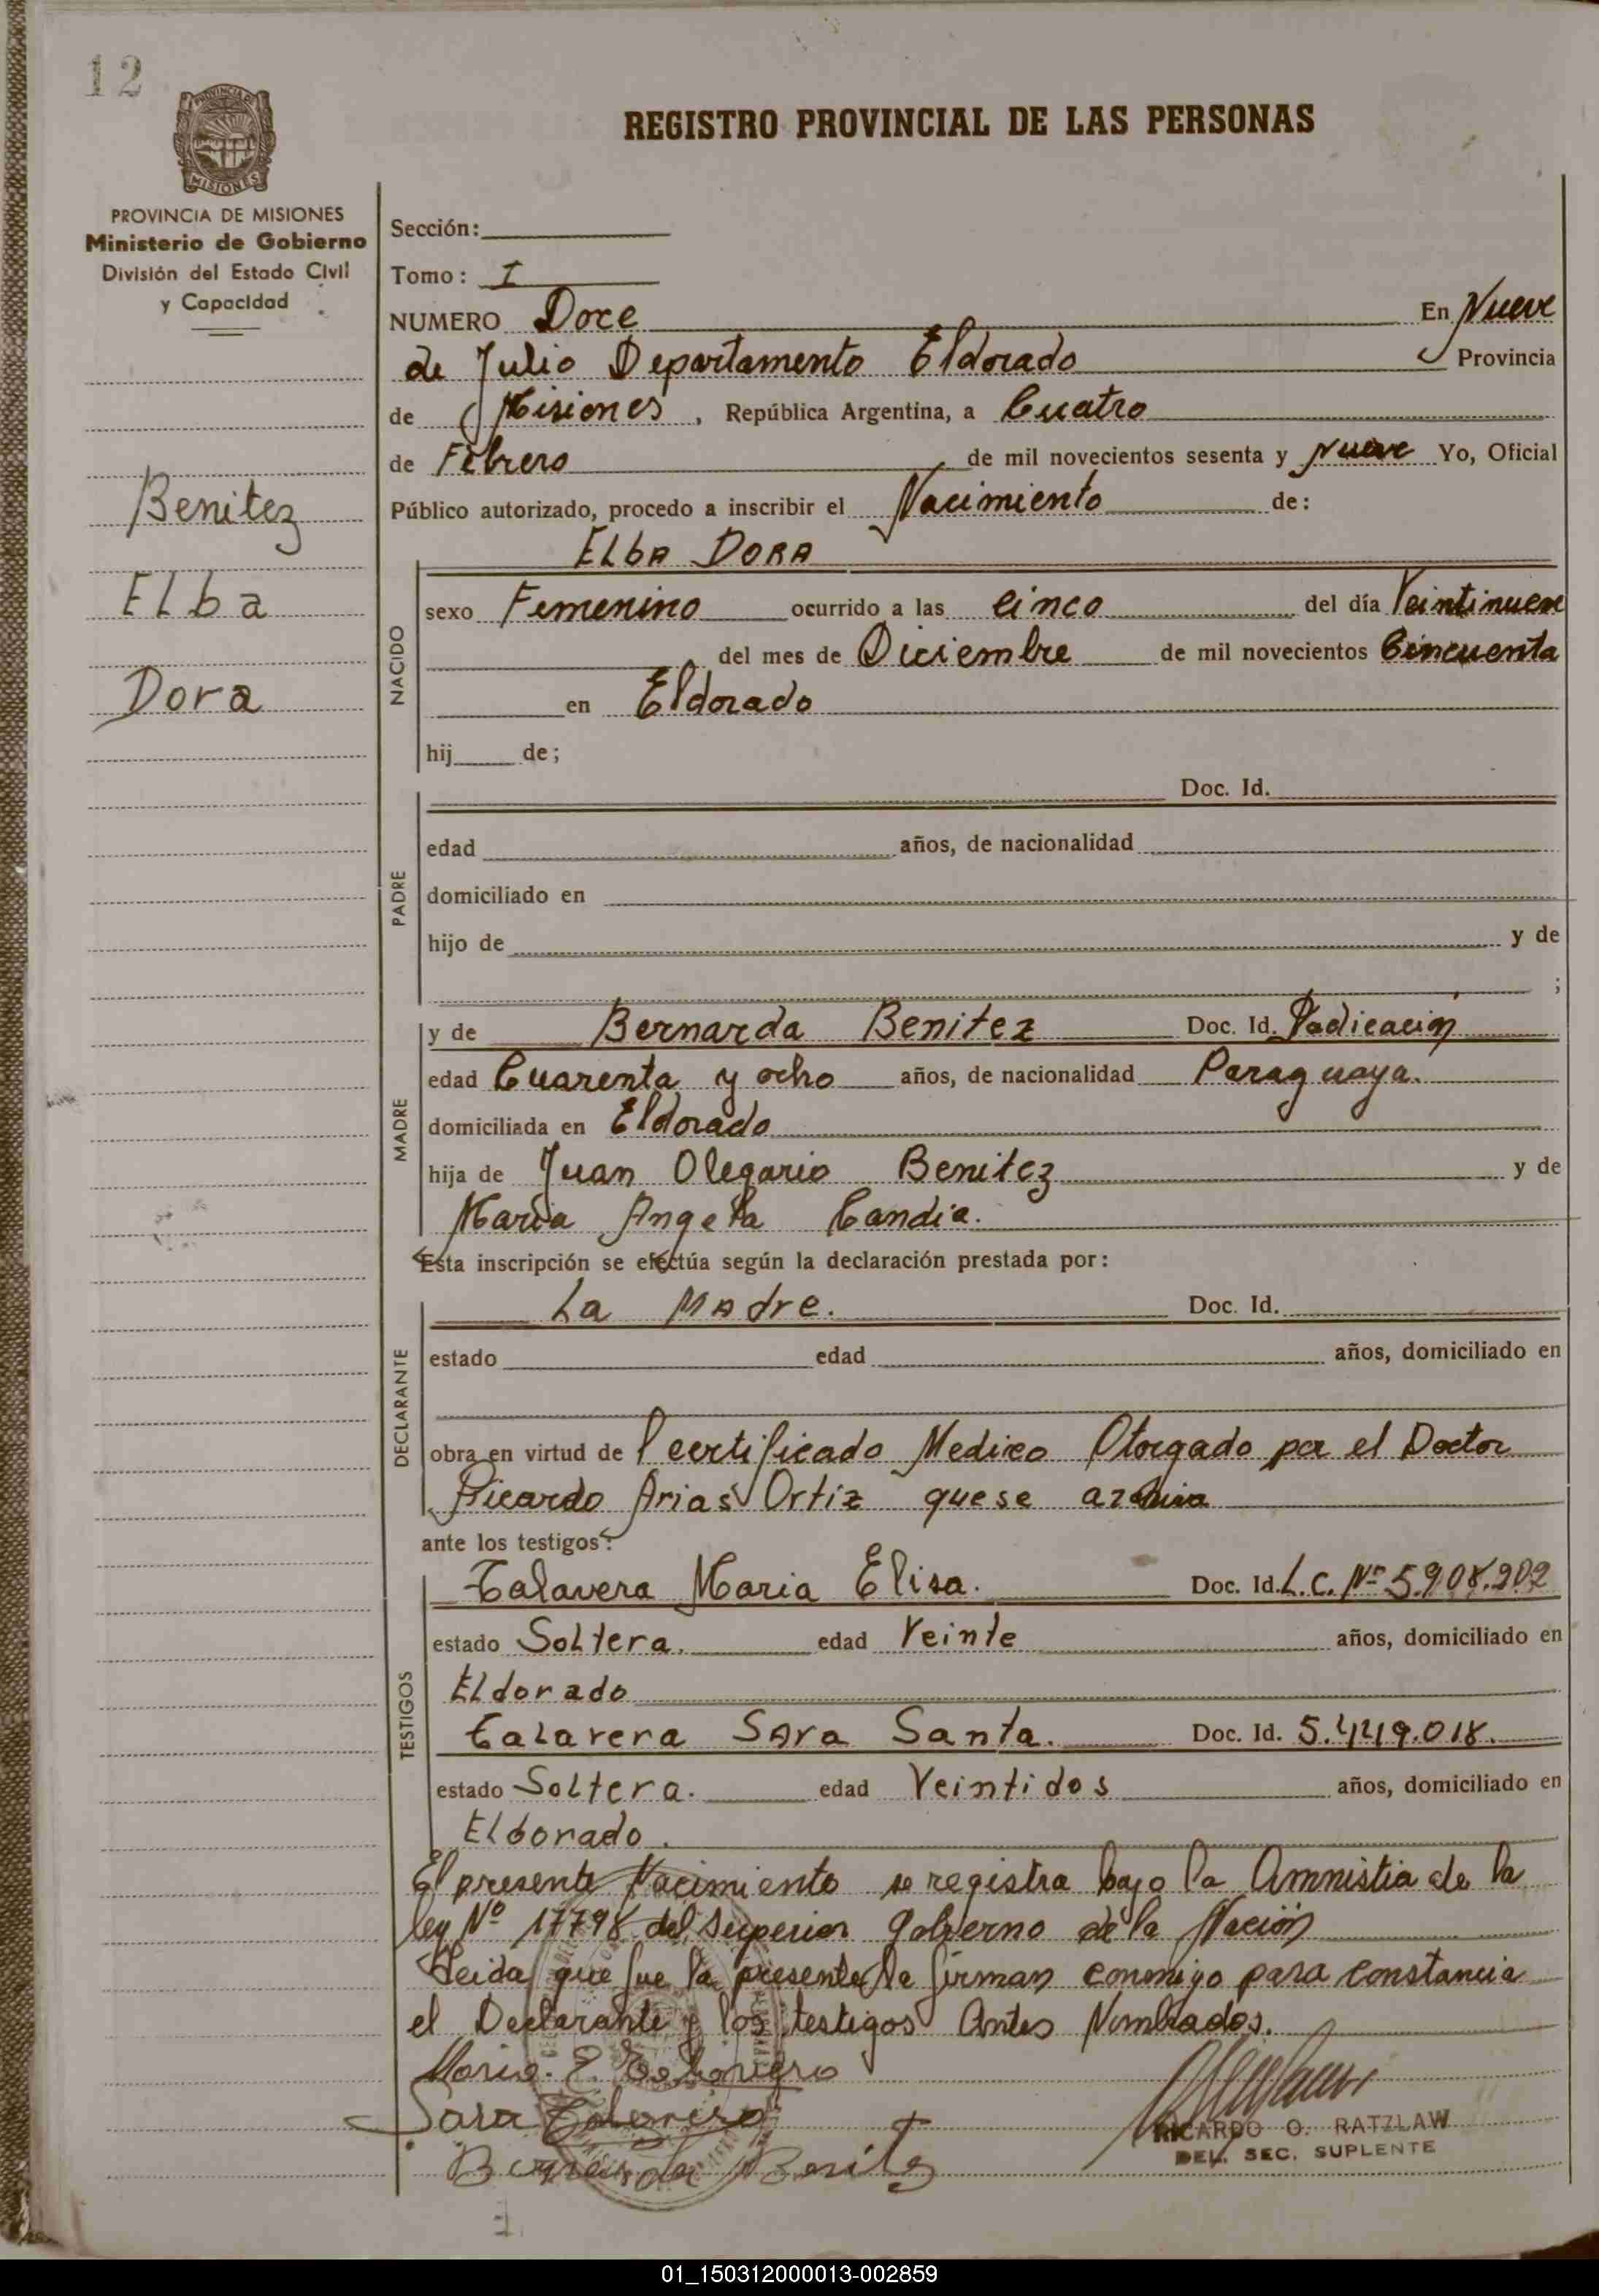 12
PROVINCIA DE
MISIONES
REGISTRO PROVINCIAL DE LAS PERSONAS
PROVINCIA DE MISIONES
Ministerio de Gobierno
División del Estado Civil
y Capacidad
Benitez
Elba
Dora
Sección:
Tomo: I
NUMERO Doce En Nueve
de Julio Departamento Eldorado Provincia
de Misiones, República Argentina, a Cuatro
de Febrero de mil novecientos sesenta y Nueve Yo, Oficial
Público autorizado, procedo a inscribir el Nacimiento de:
ELbA DORA
NACIDO
sexo Femenino ocurrido a las cinco del día Veintinueve
del mes de Diciembre de mil novecientos Cincuenta
en Eldorado
hij de;
PADRE
Doc. Id.
edad años, de nacionalidad
domiciliado en
hijo de y de
;
MADRE
y de Bernarda Benitez Doc. Id. Radicación
edad Cuarenta y ocho años, de nacionalidad Paraguaya.
domiciliada en Eldorado
hija de Juan Olegario Benitez y de
Maria Angela Candia.
Esta inscripción se efectúa según la declaración prestada por:
DECLARANTE
La Madre. Doc. Id.
estado edad años, domiciliado en
obra en virtud de Certificado Medico Otorgado por el Doctor
Ricardo Arias Ortiz que se
ante los testigos:
TESTIGOS
Talavera Maria Elisa. Doc. Id. L.C. Nº 5.908.202
estado Soltera. edad Veinte años, domiciliado en
Eldorado
Talavera Sara Santa. Doc. Id. 5.449.018.
estado Soltera. edad Veintidos años, domiciliado en
Eldorado.
El presente Nacimiento se registra bajo la Amnistia de la
ley Nº 17798 del Superior Gobierno de la Nación
Leida que fue la presente la firman conmigo para constancia
el Declarante y los testigos Antes Nombrados.
Maria E. Talavera
Sara Talavera
Bernarda Benitez
RICARDO O. RATZLAW
DEL. SEC. SUPLENTE
01_150312000013-002859